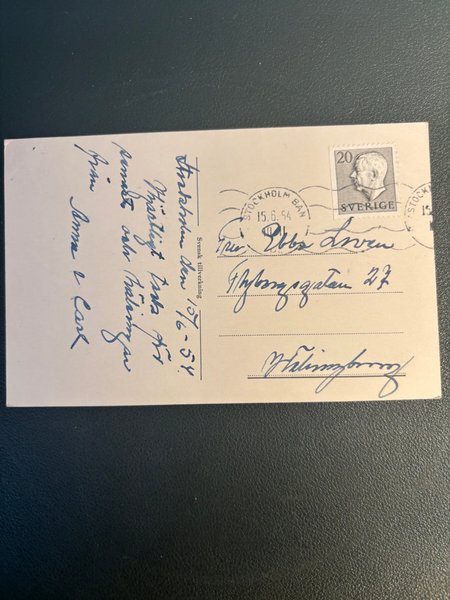 Stockholm den 15/6-54.
Hjärtligt tack för
senast och hälsningar
från Anna o Carl
Svensk tillverkning
20
SVERIGE
STOCKHOLM BAN
15.6.54
STOCKHOLM
15
Fru Ebba
27
Hälsingborg